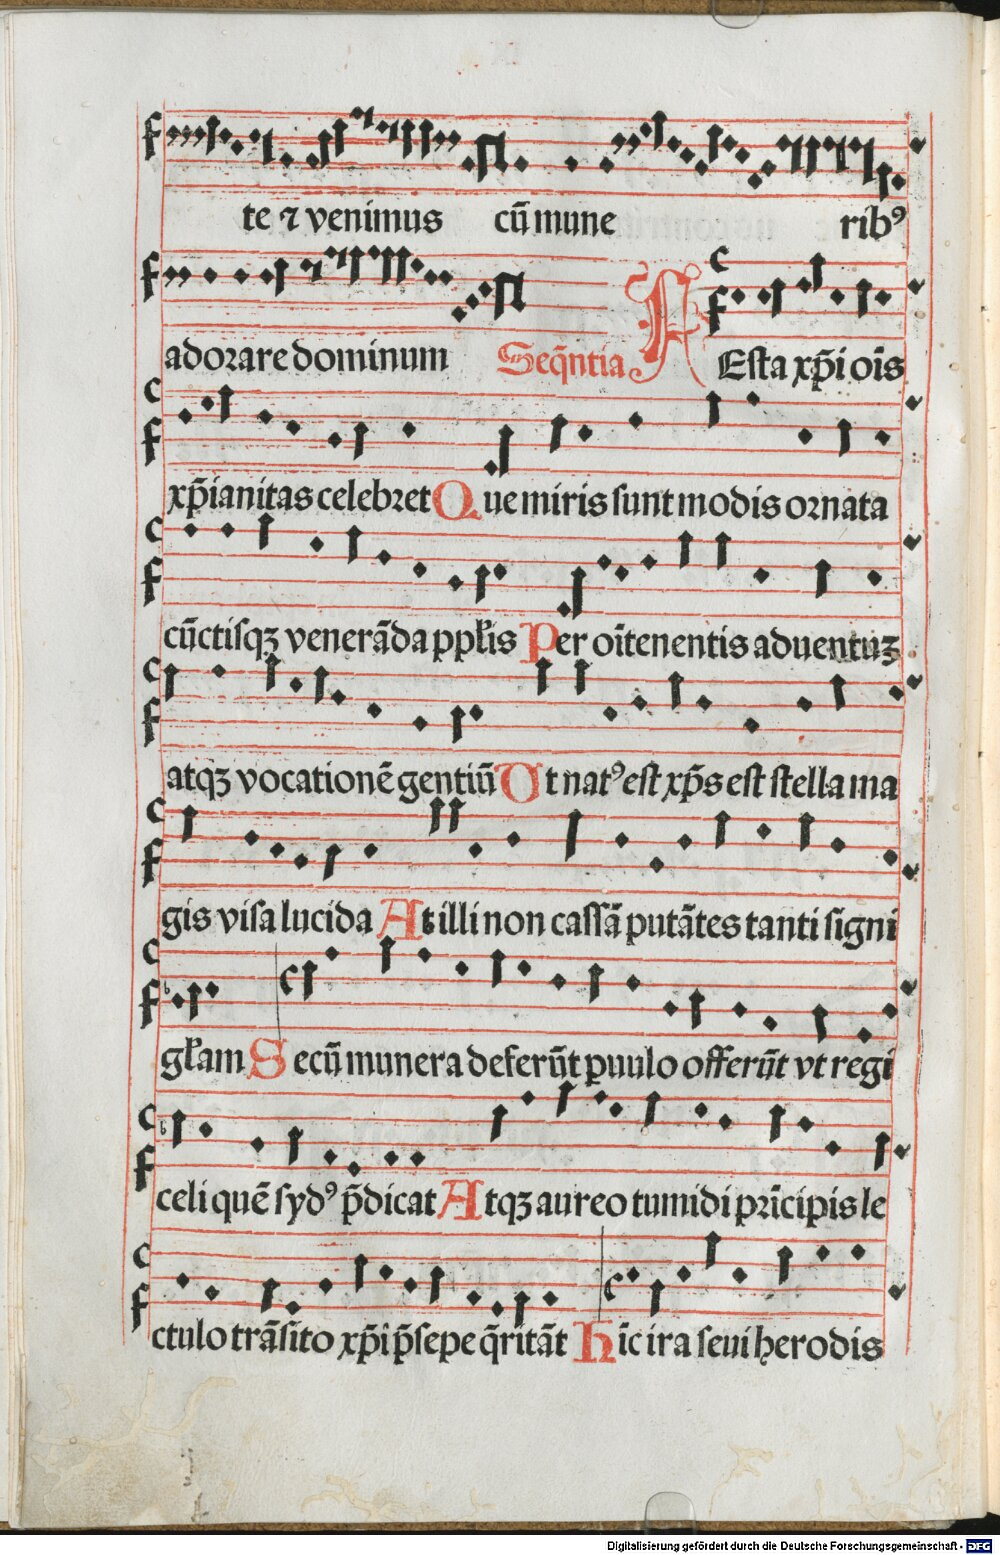 te ⁊ venimus cū mune ribꝰ
adorare dominum Seq̄ntia Festa xp̄i oīs
xp̄ianitas celebret Que miris sunt modis ornata
cūctisqꝫ venerāda ppl̄is Per oītenentis aduentuꝫ
atqꝫ vocationē gentiū Ut natꝰ est xp̄s est stella ma
gis visa lucida At illi non cassā putātes tanti signi
gl̄am Secū munera deferūt puulo offerūt vt regi
celi quē sydꝰ p̄dicat Atqꝫ aureo tumidi prīcipis le
ctulo trāsito xp̄i p̄sepe q̄ritāt Hīc ira seui herodis
Digitalisierung gefördert durch die Deutsche Forschungsgemeinschaft - DFG